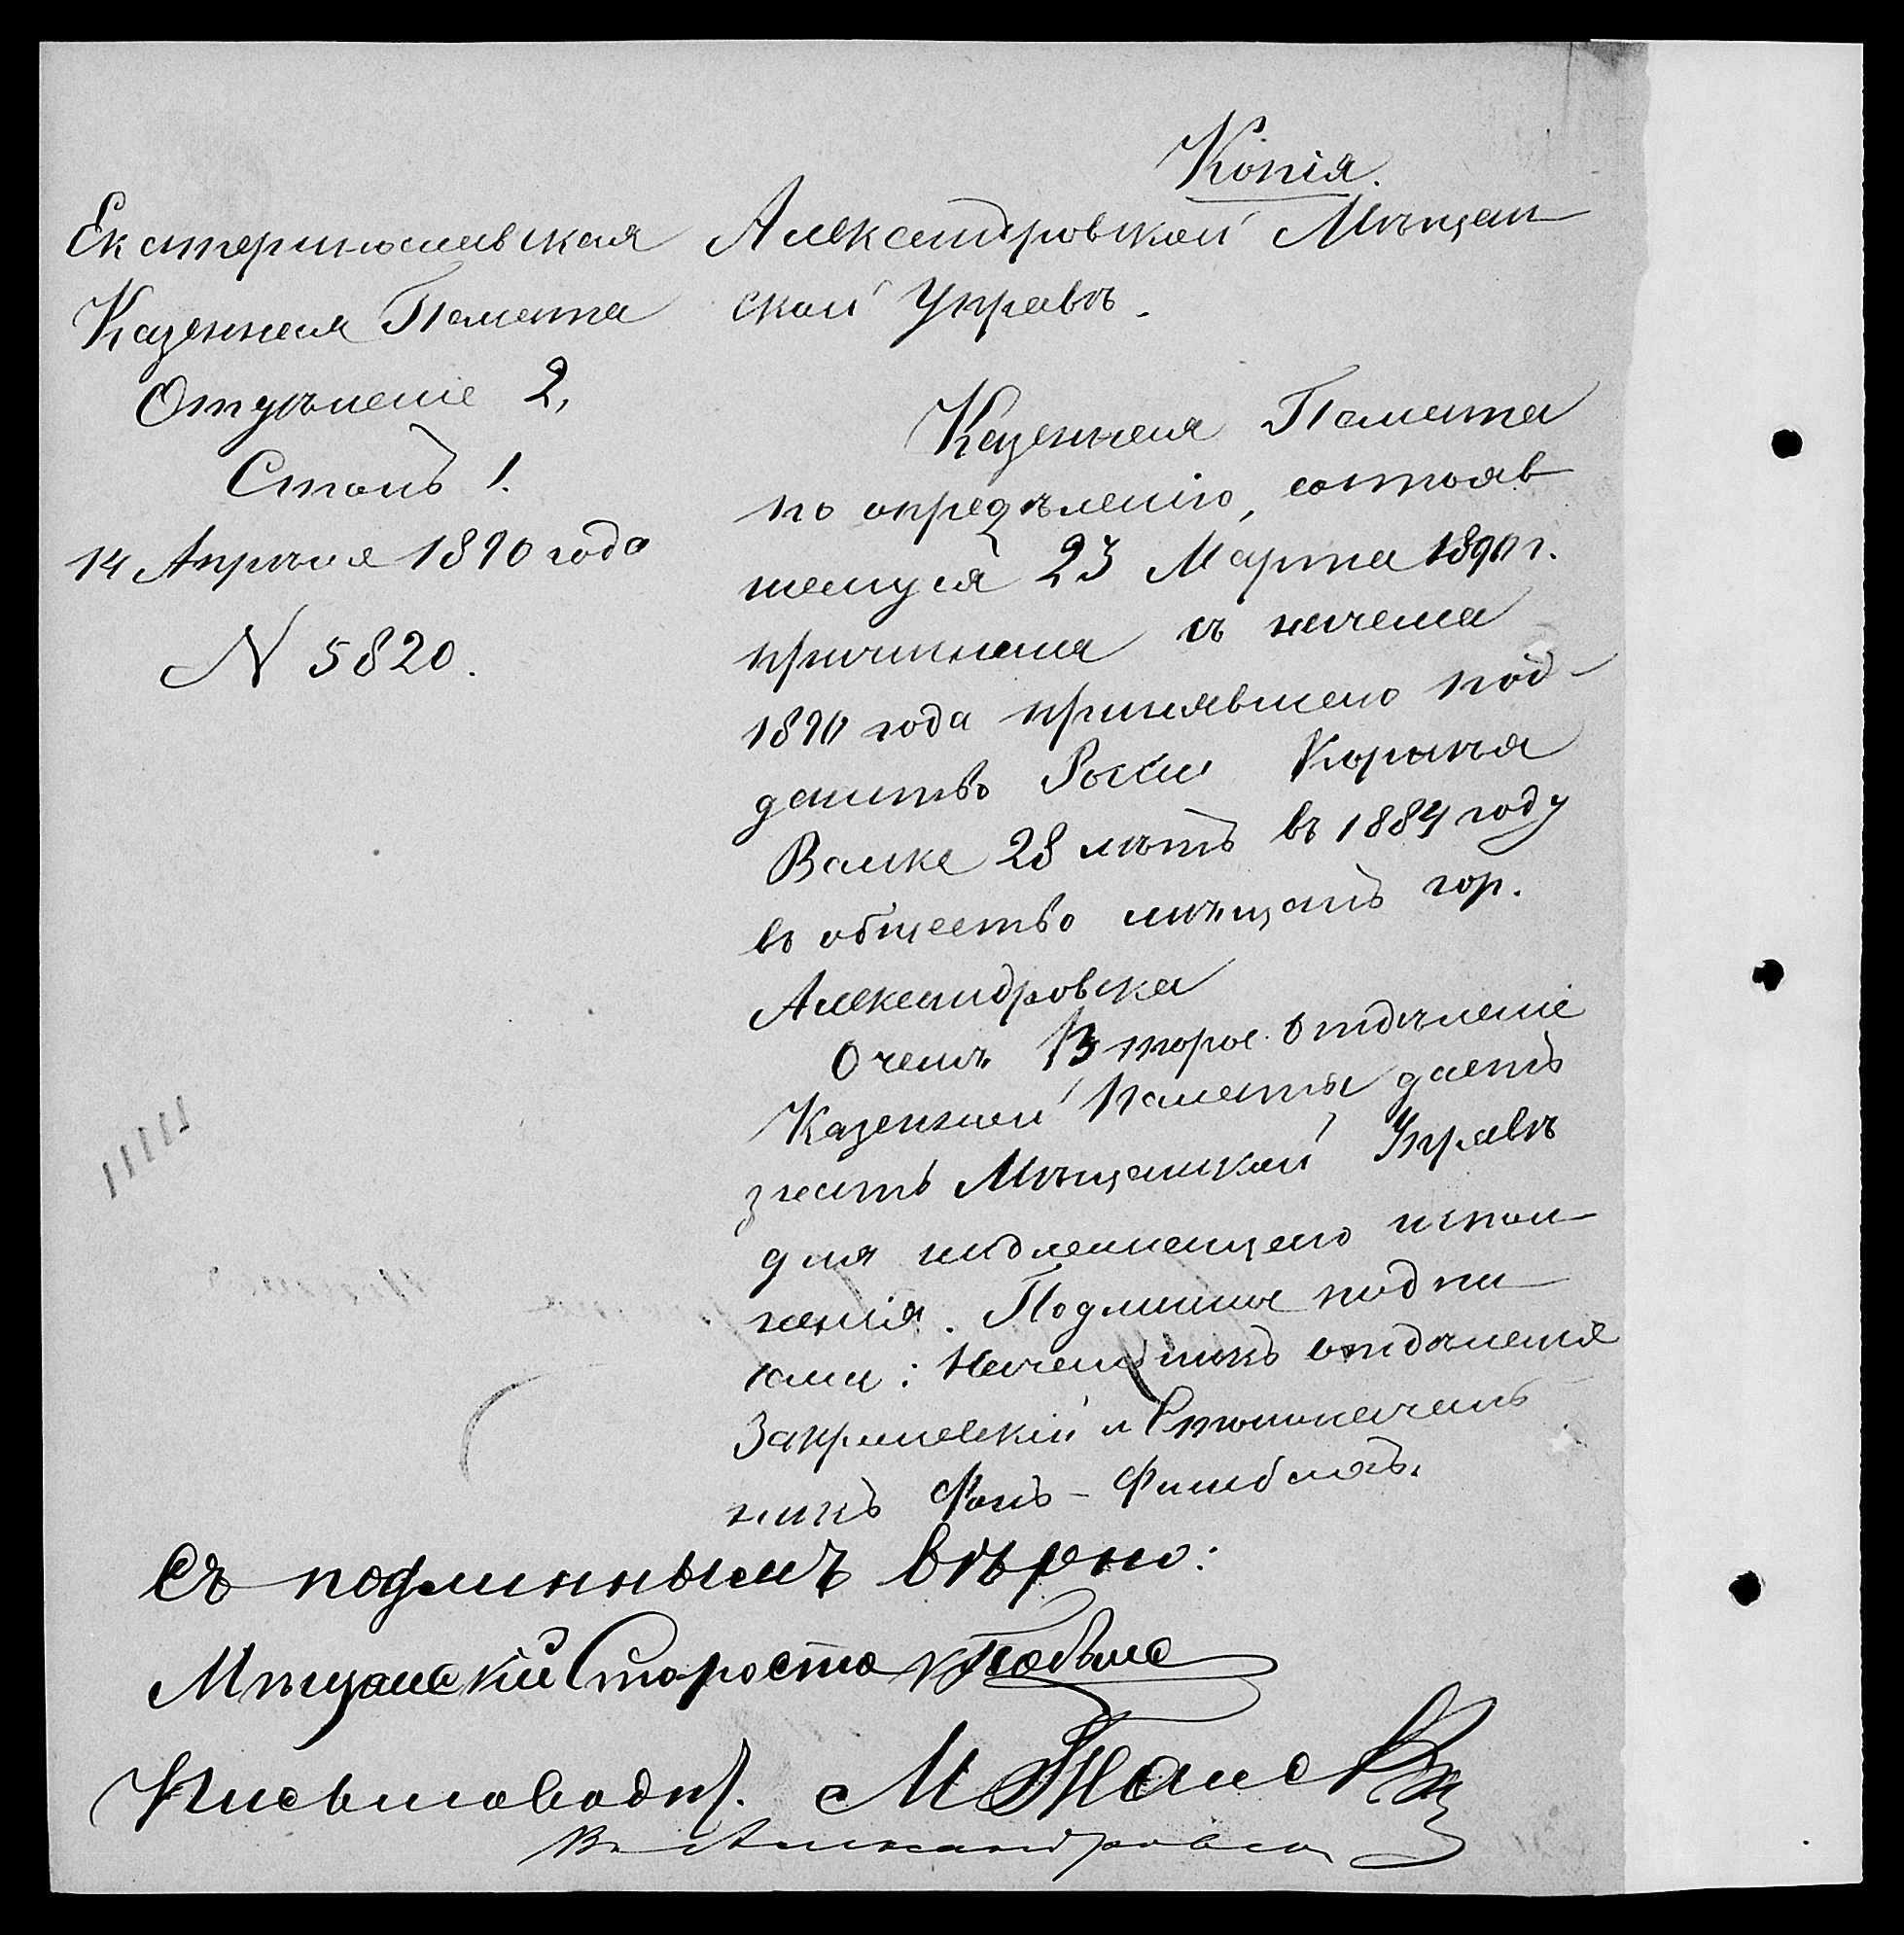 Копія.
Екатеринославская
Казенная Палата
Отдѣленіе 2,
Столъ 1.
14 Апрѣля 1890 года
N 5820.
Александровской Мѣщан
ской Управѣ.
Казенная Палата
по опредѣленію, состояв
шемуся 23 Марта 1890 г.
причислила съ начала
1890 года принявшего под-
данство Россіи
Валке 28 лѣтъ въ 1884 году
въ общество мѣщанъ гор.
Александровска
О чемъ Второе Отдѣленіе
Казенной Палаты даетъ
знать Мѣщанской Управѣ
для надлежащего испол
ненія. Подлинное подпи
сали: Начальникъ отдѣленія
Закржевскій и Столоначаль
никъ Фонъ-
Съ подлиннымъ вѣрно:
Мѣщанскій Староста
Письмоводит. М
В. Александровск